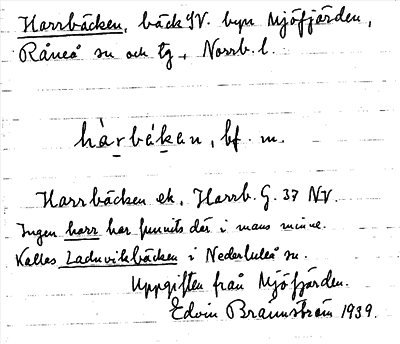 Harrbäcken, bäck SV. byn Mjöfjärden,
Råneå sn och tg, Norrb. l.
hàrbékan, bf. m.
Harrbäcken ek, Harrb. G. 37 NV.
Ingen harr har funnits där i mans minne.
Kallas Laduvikbäcken i Nederluleå sn.
Uppgiften från Mjöfjärden.
Edvin Brännström 1939.